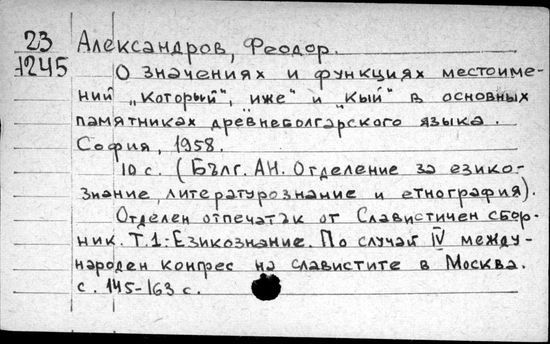 23
1245
Александров, Феодор.
О значениях и функциях местоиме-
ний „который“, иже“ и „кый“ в основных
памятниках древнеболгарского языка.
София, 1958.
10 с. (Бълг. АН. Отделение за езико-
знание, литературознание и етнография).
Отделен отпечатък от Славистичен сбор-
ник. Т.1: Езикознание. По случай IV между-
народен конгрес на славистите в Москва.
с. 145-163 с.